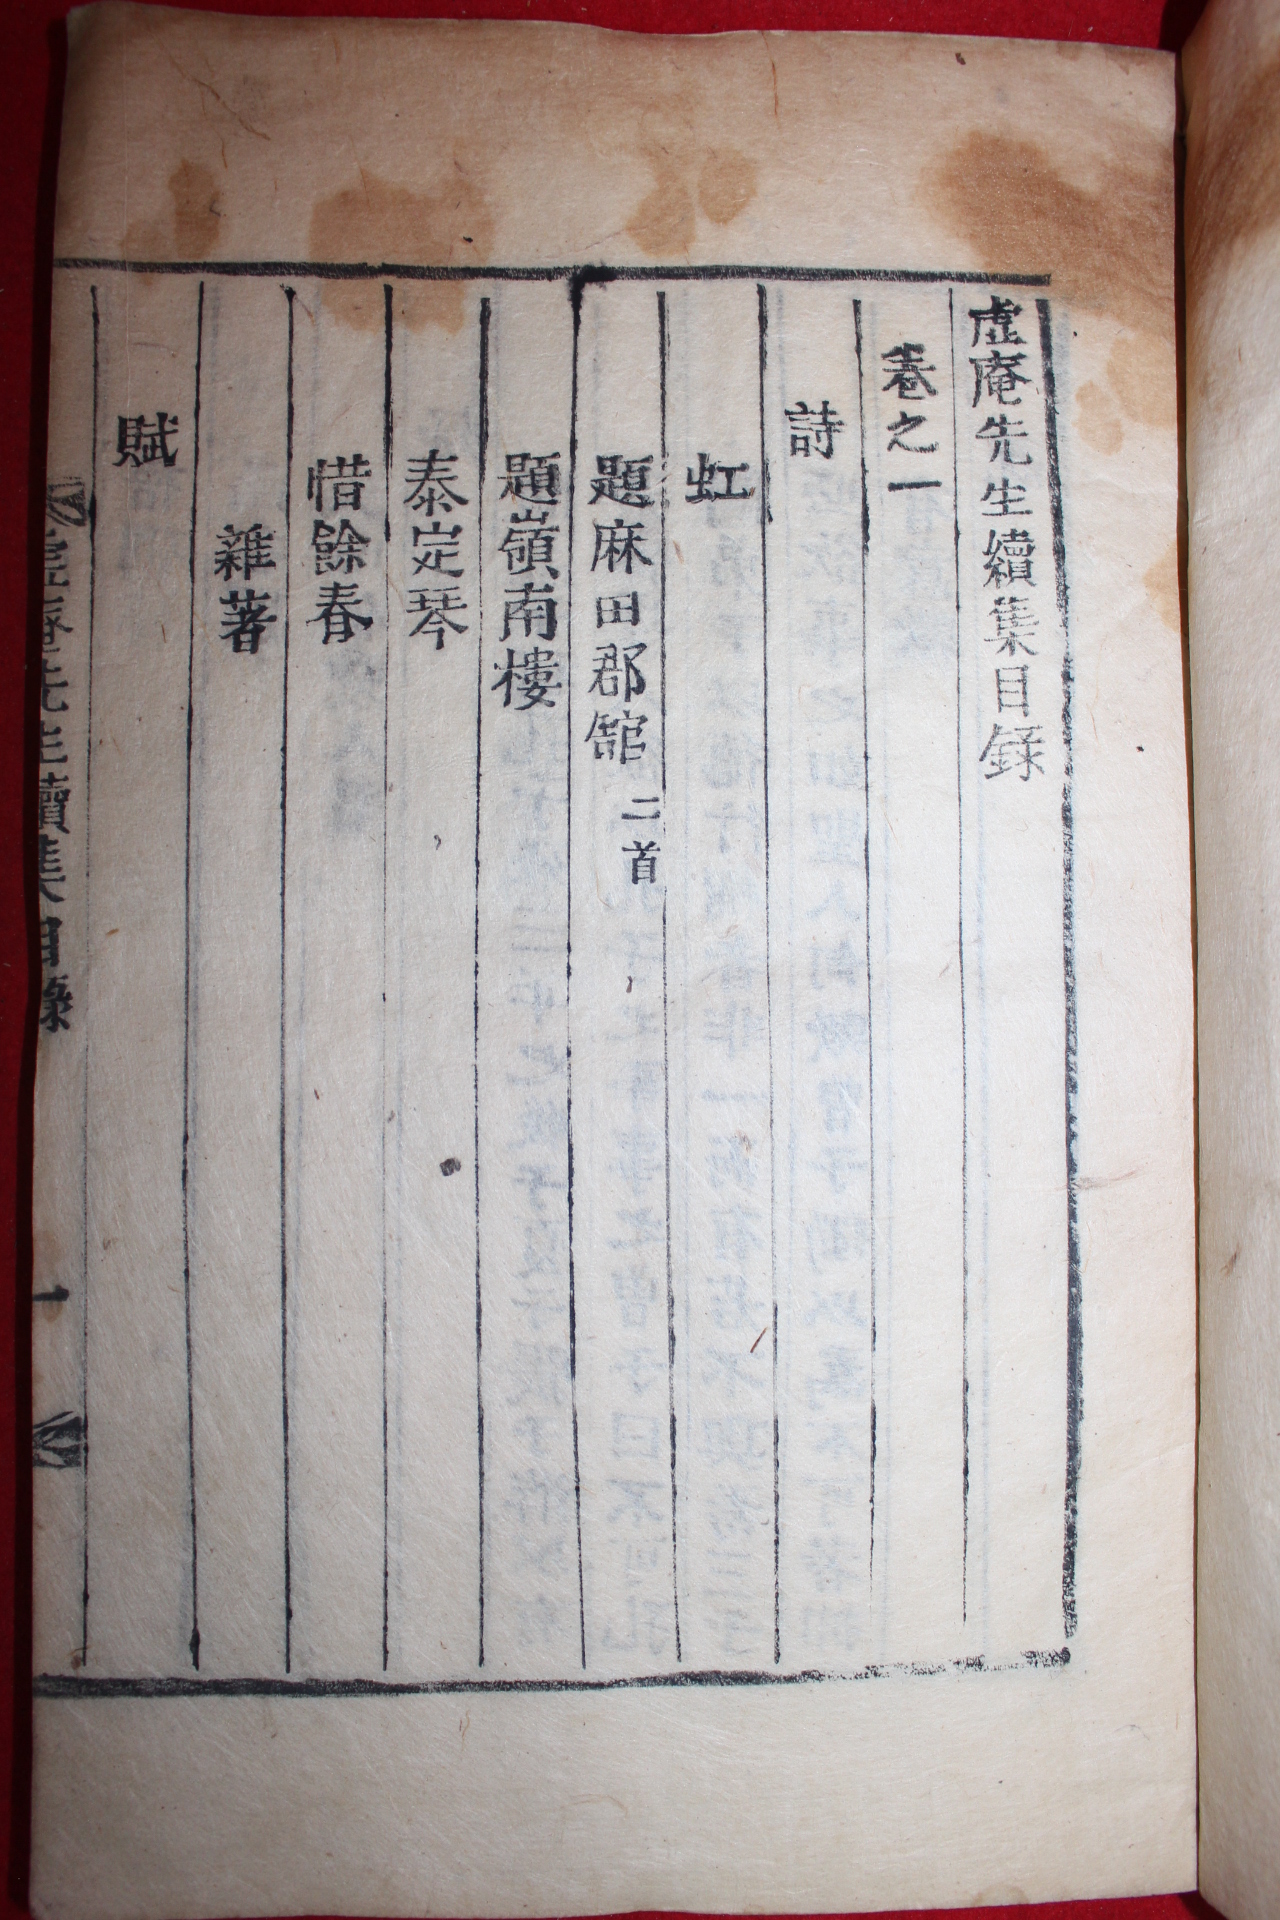 虛庵先生續集目錄
卷之一
詩
虹
題麻田郡館 二首
題嶺南樓
泰定琴
惜餘春
雜著
賦
虛庵先生續集目錄 一